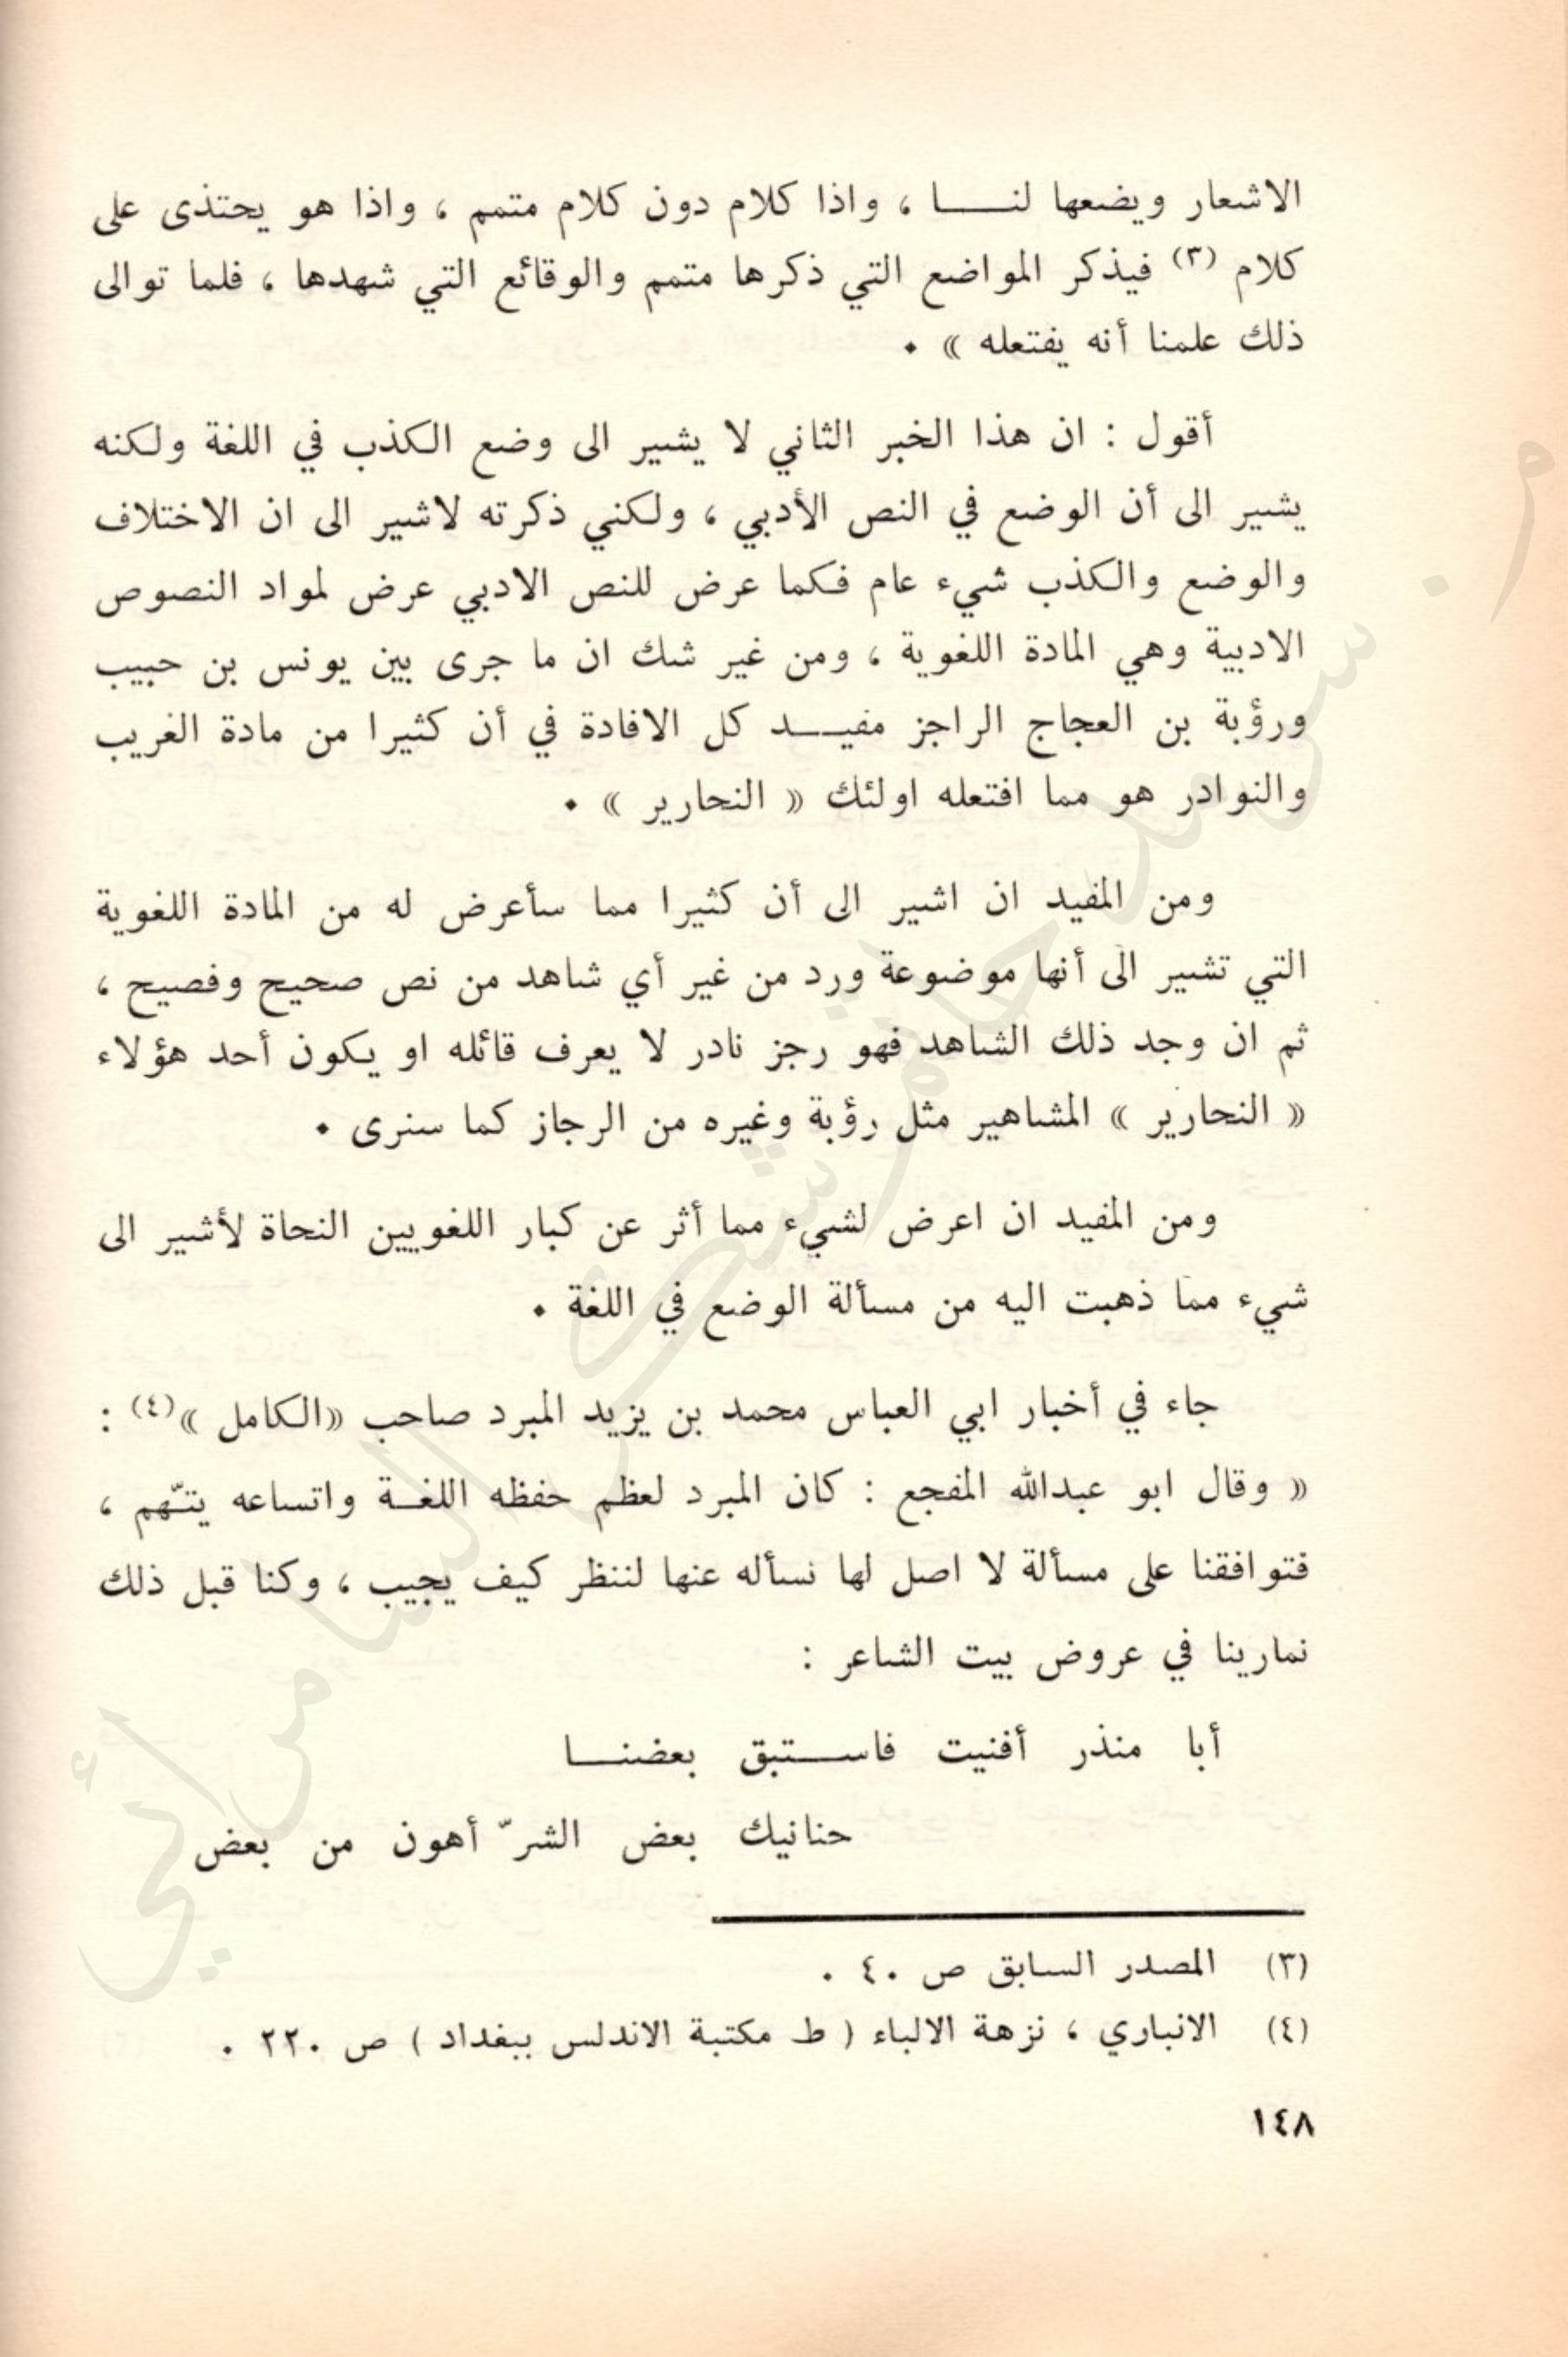 الاشعار ويضعها لنـــا ، واذا كلام دون كلام متمم ، واذا هو يحتذى على
كلام (٣) فيذكر المواضع التي ذكرها متمم والوقائع التي شهدها ، فلما توالى
ذلك علمنا أنه يفتعله » .
أقول : ان هذا الخبر الثاني لا يشير الى وضع الكذب في اللغة ولكنه
يشير الى أن الوضع في النص الأدبي ، ولكني ذكرته لاشير الى ان الاختلاف
والوضع والكذب شيء عام فكما عرض للنص الادبي عرض لمواد النصوص
الادبية وهي المادة اللغوية ، ومن غير شك ان ما جرى بين يونس بن حبيب
ورؤبة بن العجاج الراجز مفيـــد كل الافادة في أن كثيرا من مادة الغريب
والنوادر هو مما افتعله اولئك « النحارير » .
ومن المفيد ان اشير الى أن كثيرا مما سأعرض له من المادة اللغوية
التي تشير الى أنها موضوعة ورد من غير أي شاهد من نص صحيح وفصيح ،
ثم ان وجد ذلك الشاهد فهو رجز نادر لا يعرف قائله او يكون أحد هؤلاء
« النحارير » المشاهير مثل رؤبة وغيره من الرجاز كما سنرى .
ومن المفيد ان اعرض لشيء مما أثر عن كبار اللغويين النحاة لأشير الى
شيء مما ذهبت اليه من مسألة الوضع في اللغة .
جاء في أخبار ابي العباس محمد بن يزيد المبرد صاحب «الكامل »(٤) :
« وقال ابو عبدالله المفجع : كان المبرد لعظم حفظه اللغـة واتساعه يتّهم ،
فتوافقنا على مسألة لا اصل لها نسأله عنها لننظر كيف يجيب ، وكنا قبل ذلك
نمارينا في عروض بيت الشاعر :
أبا منذر أفنيت فاســتبق بعضنـــا
حنانيك بعض الشرّ أهون من بعض
(٣) المصدر السابق ص ٤٠ .
(٤) الانباري ، نزهة الالباء ( ط مكتبة الاندلس ببغداد ) ص ٢٢٠ .
١٤٨